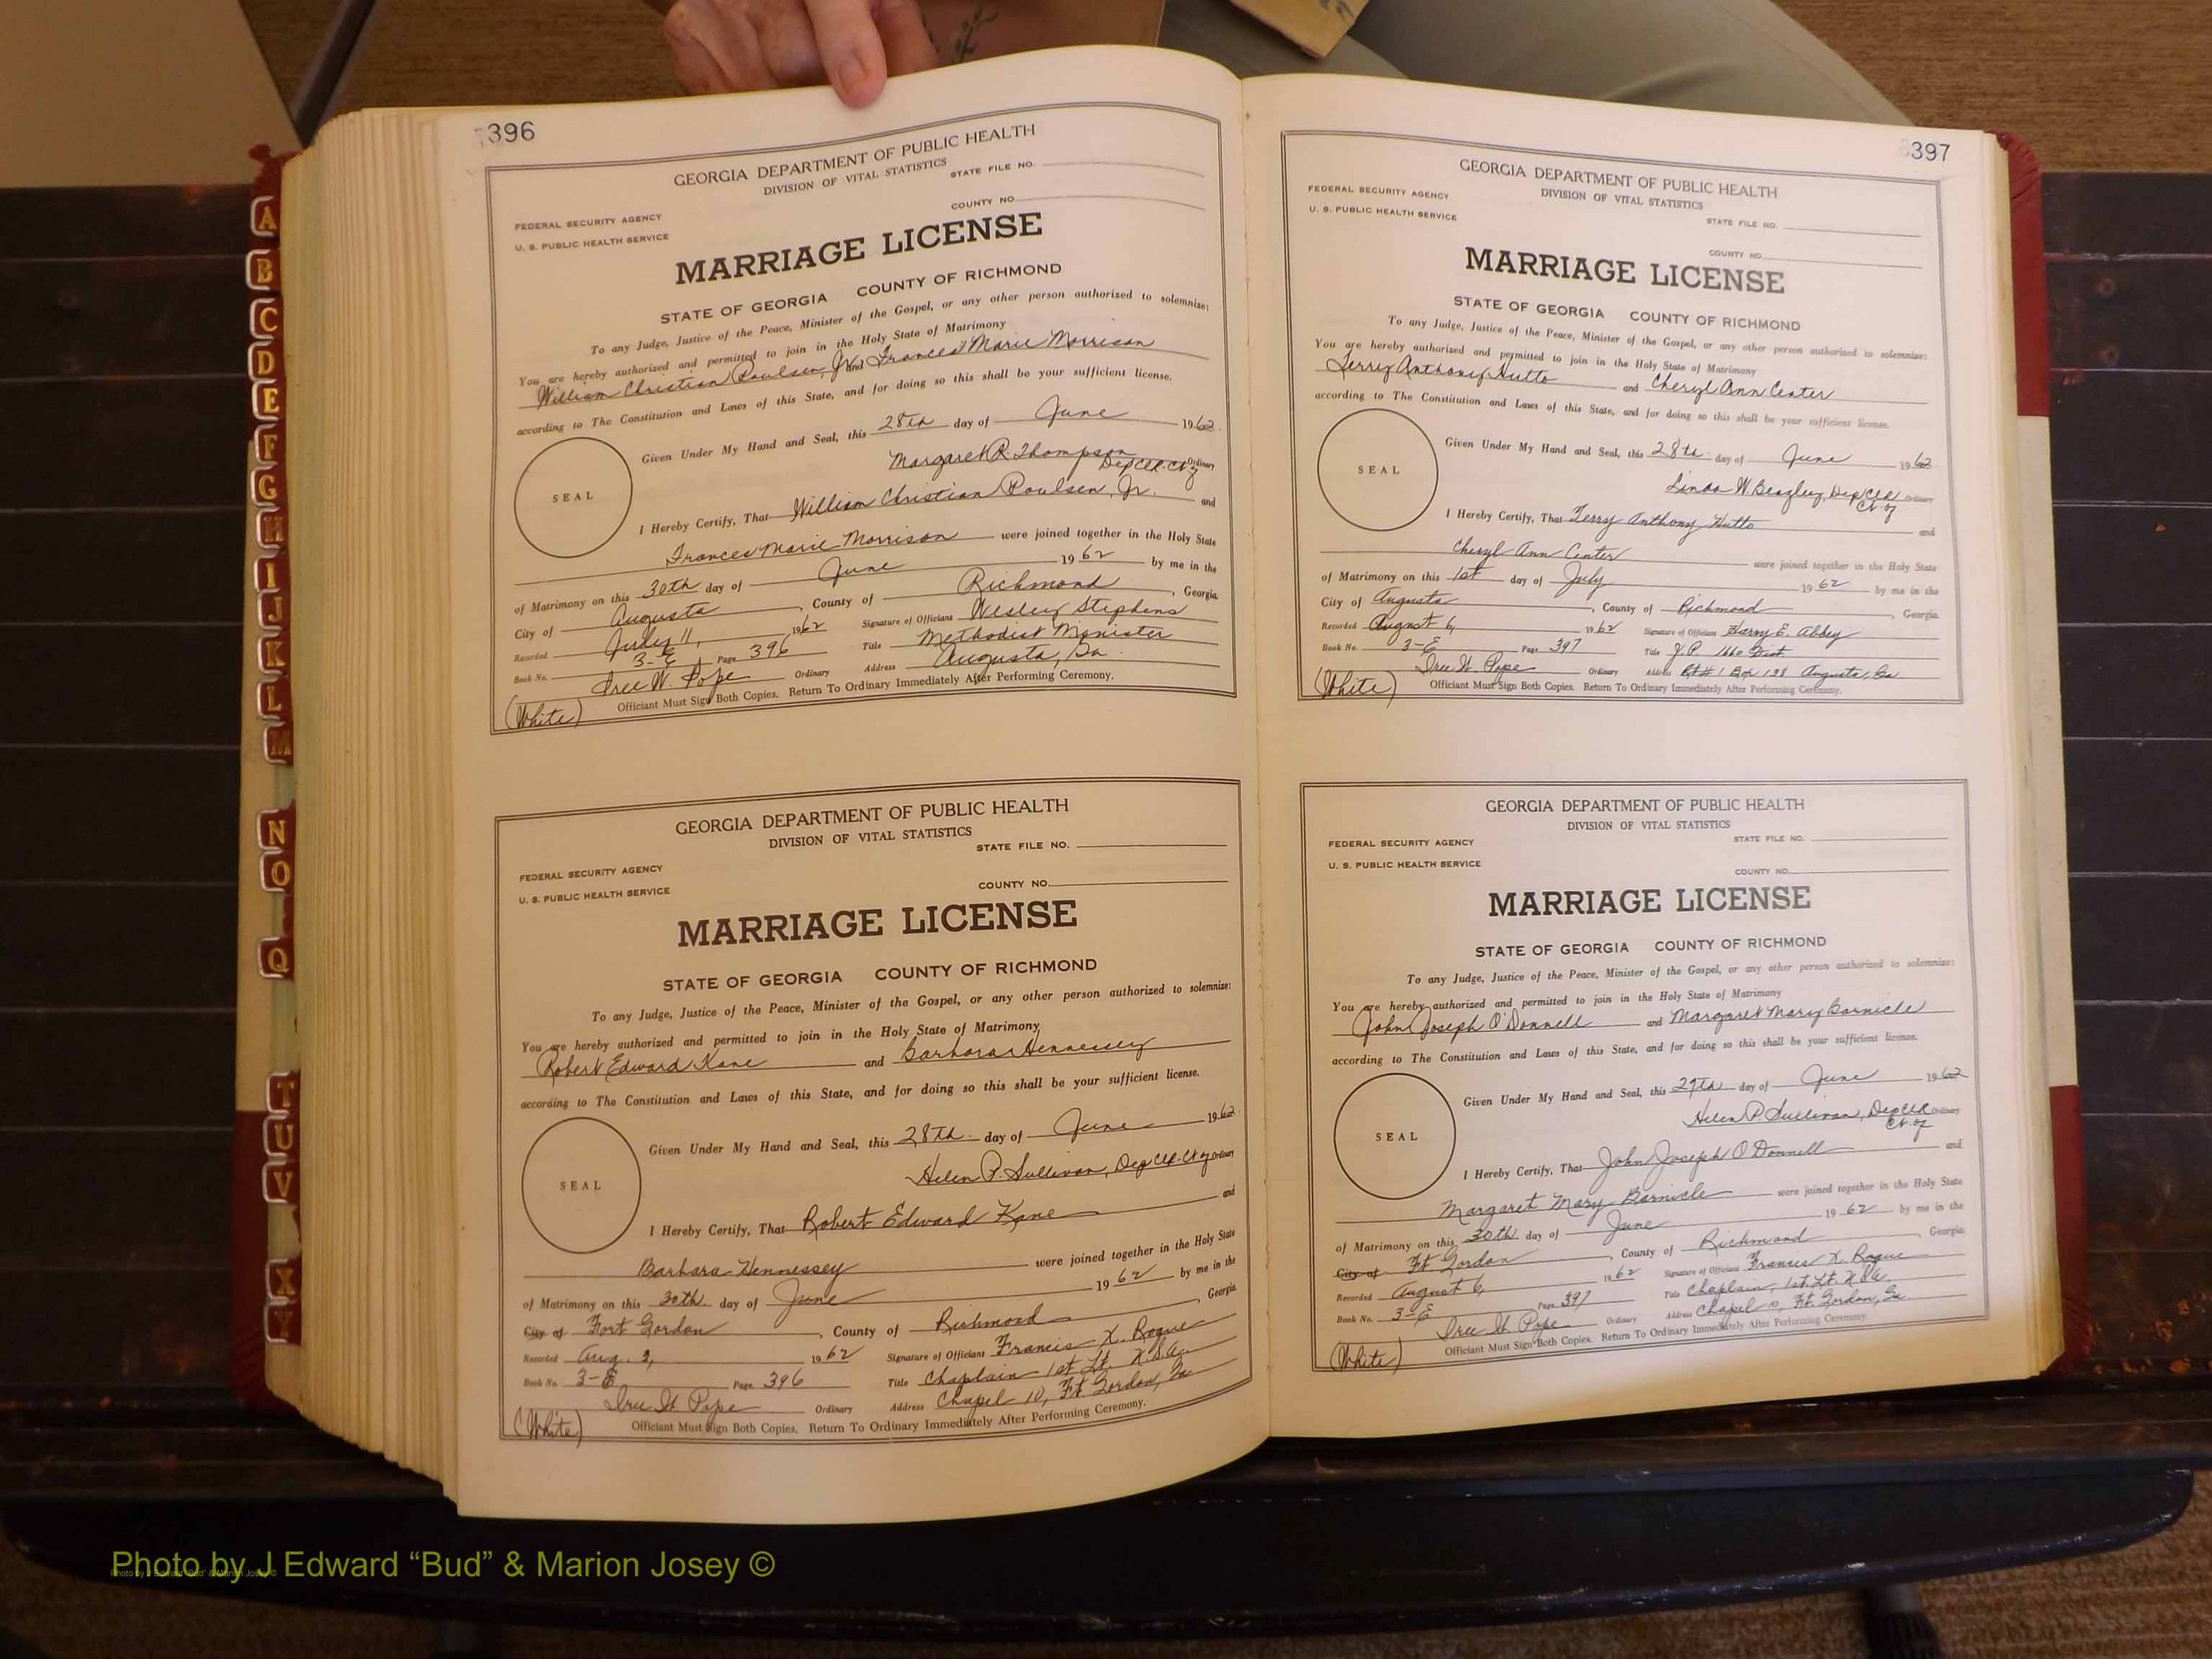 396
GEORGIA DEPARTMENT OF PUBLIC HEALTH
DIVISION OF VITAL STATISTICS
STATE FILE NO.
FEDERAL SECURITY AGENCY
U. S. PUBLIC HEALTH SERVICE
COUNTY NO.
MARRIAGE LICENSE
STATE OF GEORGIA COUNTY OF RICHMOND
To any Judge, Justice of the Peace, Minister of the Gospel, or any other person authorized to solemnize:
You are hereby authorized and permitted to join in the Holy State of Matrimony
William Christian Poulsen, Jr. and Frances Marie Morrison
according to The Constitution and Laws of this State, and for doing so this shall be your sufficient license.
Given Under My Hand and Seal, this 28th day of June 1962.
Margaret R. Thompson
Dep Clk. Ct. of Ordinary
SEAL
I Hereby Certify, That William Christian Poulsen, Jr. and
Frances Marie Morrison were joined together in the Holy State
of Matrimony on this 30th day of June 1962 by me in the
City of Augusta, County of Richmond, Georgia.
Recorded July 11 1962 Signature of Officiant Wesley Stephens
Book No. 3-E Page 396 Title Methodist Minister
Iree W. Pope Ordinary Address Augusta, Ga.
(White) Officiant Must Sign Both Copies. Return To Ordinary Immediately After Performing Ceremony.
GEORGIA DEPARTMENT OF PUBLIC HEALTH
DIVISION OF VITAL STATISTICS
STATE FILE NO.
FEDERAL SECURITY AGENCY
U. S. PUBLIC HEALTH SERVICE
COUNTY NO.
MARRIAGE LICENSE
STATE OF GEORGIA COUNTY OF RICHMOND
To any Judge, Justice of the Peace, Minister of the Gospel, or any other person authorized to solemnize:
You are hereby authorized and permitted to join in the Holy State of Matrimony
Robert Edward Kane and Barbara Hennessey
according to The Constitution and Laws of this State, and for doing so this shall be your sufficient license.
Given Under My Hand and Seal, this 28th day of June 1962
Helen P. Sullivan, Dep Clk. Ct of Ordinary
SEAL
I Hereby Certify, That Robert Edward Kane and
Barbara Hennessey were joined together in the Holy State
of Matrimony on this 30th. day of June 1962 by me in the
City of Fort Gordon, County of Richmond, Georgia.
Recorded Aug. 2, 1962 Signature of Officiant Francis X. Rogue
Book No. 3-E Page 396 Title Chaplain 1st Lt.
Iree W. Pope Ordinary Address Chapel 10, Ft Gordon, Ga
(White) Officiant Must Sign Both Copies. Return To Ordinary Immediately After Performing Ceremony.
397
GEORGIA DEPARTMENT OF PUBLIC HEALTH
DIVISION OF VITAL STATISTICS
FEDERAL SECURITY AGENCY
U. S. PUBLIC HEALTH SERVICE
STATE FILE NO.
COUNTY NO.
MARRIAGE LICENSE
STATE OF GEORGIA COUNTY OF RICHMOND
To any Judge, Justice of the Peace, Minister of the Gospel, or any other person authorized to solemnize:
You are hereby authorized and permitted to join in the Holy State of Matrimony
Terry Anthony Hutto and Cheryl Ann Center
according to The Constitution and Laws of this State, and for doing so this shall be your sufficient license.
Given Under My Hand and Seal, this 28th day of June 1962
Linda W Beazley, Dep Clk Ordinary
Ct. of
SEAL
I Hereby Certify, That Terry Anthony Hutto and
Cheryl Ann Center were joined together in the Holy State
of Matrimony on this 1st day of July 1962 by me in the
City of Augusta, County of Richmond, Georgia.
Recorded August 6, 1962 Signature of Officiant Harry E. Abbey
Book No. 3-E Page 397 Title J.P. 1660 Dist.
Iree W. Pope Ordinary Address Rt # 1 Box 138 Augusta, Ga
(White) Officiant Must Sign Both Copies. Return To Ordinary Immediately After Performing Ceremony.
GEORGIA DEPARTMENT OF PUBLIC HEALTH
DIVISION OF VITAL STATISTICS
STATE FILE NO.
FEDERAL SECURITY AGENCY
U. S. PUBLIC HEALTH SERVICE
COUNTY NO.
MARRIAGE LICENSE
STATE OF GEORGIA COUNTY OF RICHMOND
To any Judge, Justice of the Peace, Minister of the Gospel, or any other person authorized to solemnize:
You are hereby authorized and permitted to join in the Holy State of Matrimony
John Joseph O'Donnell and Margaret Mary Barnicle
according to The Constitution and Laws of this State, and for doing so this shall be your sufficient license.
Given Under My Hand and Seal, this 29th day of June 1962
Helen P. Sullivan, Dep Clk Ordinary
Ct. of
SEAL
I Hereby Certify, That John Joseph O'Donnell and
Margaret Mary Barnicle were joined together in the Holy State
of Matrimony on this 30th day of June 1962 by me in the
City of Ft Gordon, County of Richmond, Georgia.
Recorded August 6, 1962 Signature of Officiant Francis X. Rogue
Book No. 3-E Page 397 Title Chaplain, 1st. Lt.
Iree W. Pope Ordinary Address Chapel 10, Ft. Gordon, Ga.
(White) Officiant Must Sign Both Copies. Return To Ordinary Immediately After Performing Ceremony.
A
B
C
D
E
F
G
H
I
J
K
L
M
N
O
Q
T
U
V
X
Y
Photo by J Edward “Bud” & Marion Josey ©
Photo by J Edward "Bud" & Marion Josey ©